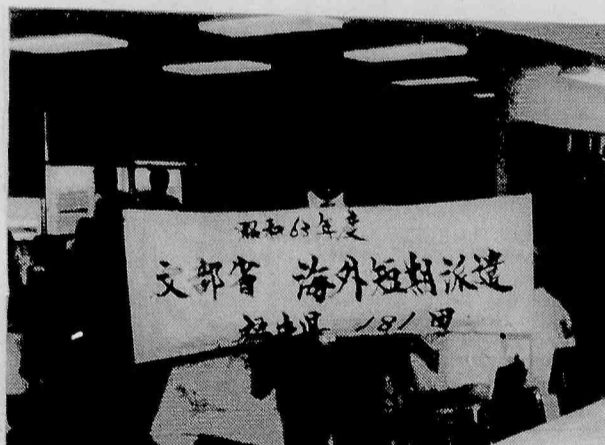 昭和63年度
文部省 海外短期派遣
福井県 181団